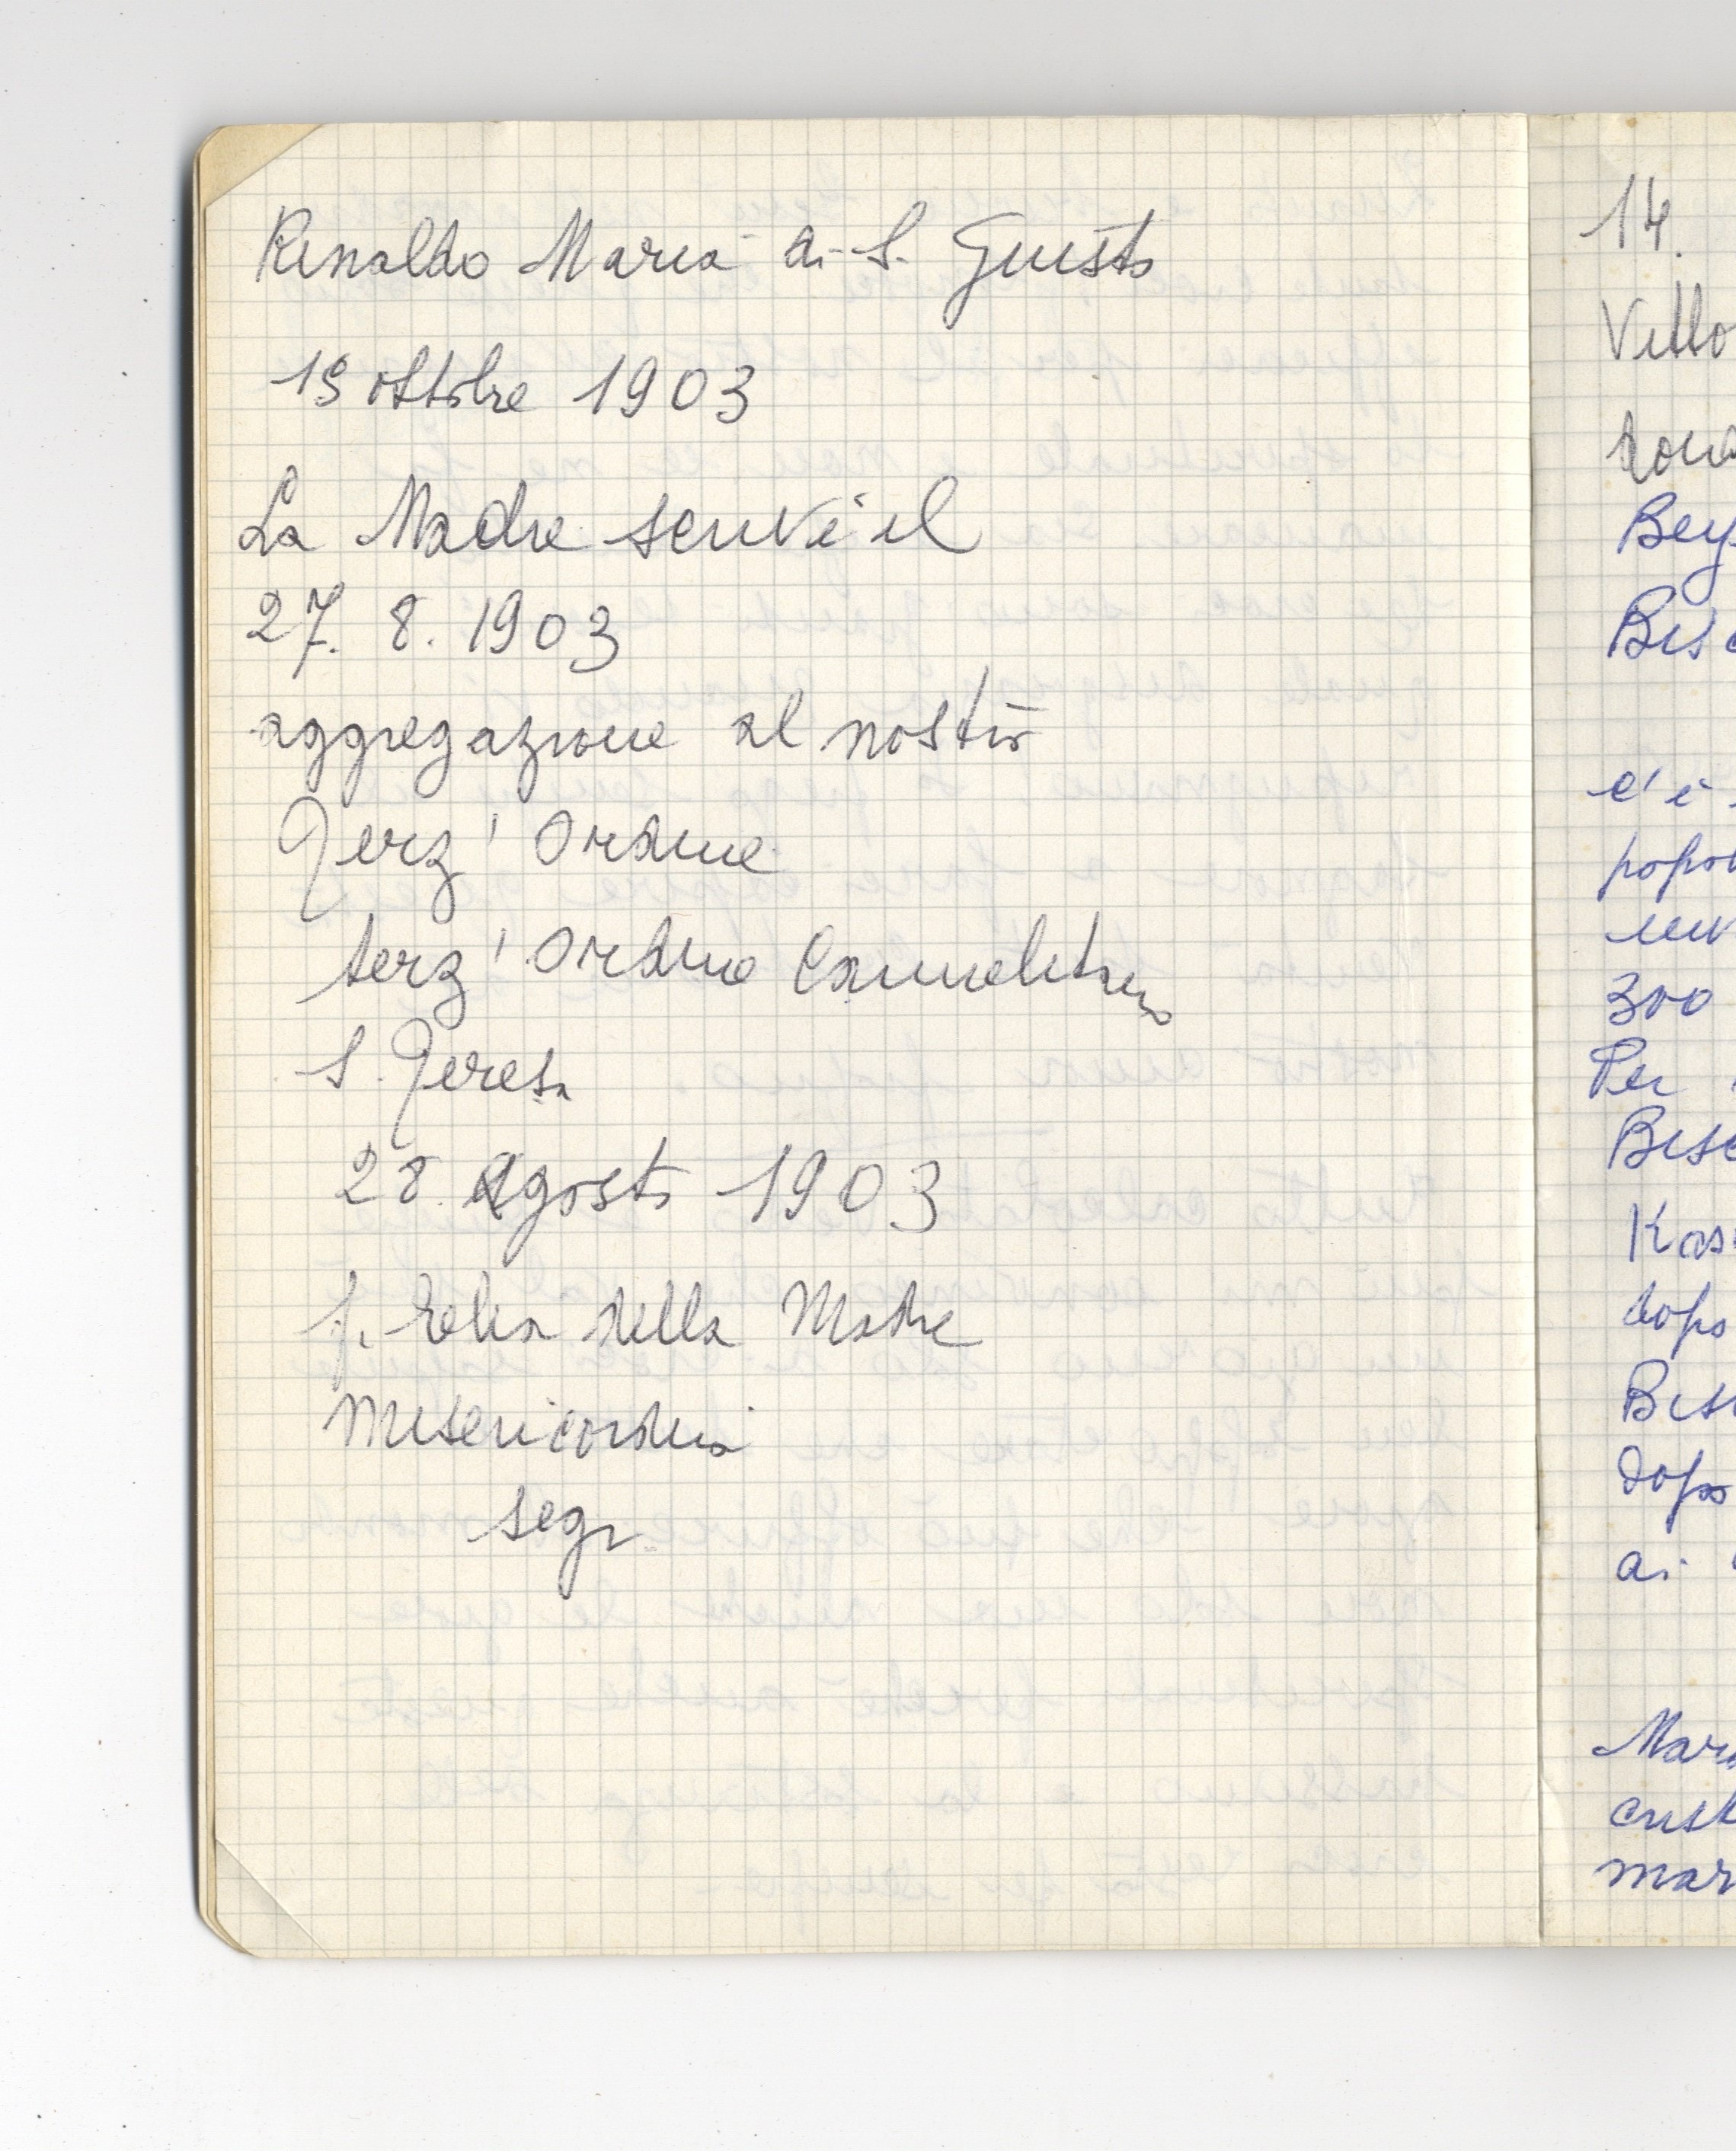 Rinaldo Maria di S. Giusto
19 ottobre 1903
La Madre scrive il
27. 8. 1903
aggregazione al nostro
Terz' Ordine
terz' Ordine Carmelitano
S. Teresa
28. Agosto 1903
f. Elia della Madre
Misericordia
segr.
14.
Vitto
Bey
Bisc
c'è
popol
300
Per
Bisc
Kas
dopo
Bisc
Dopo
di
Mar
crist
mar